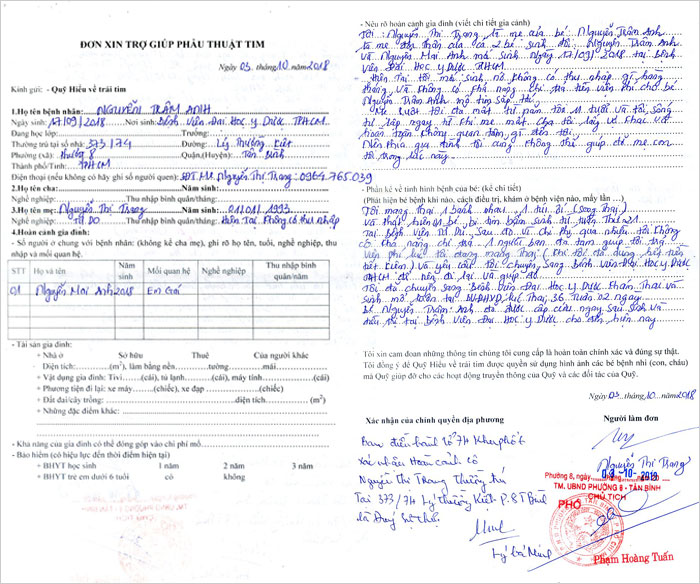 ĐƠN XIN TRỢ GIÚP PHẪU THUẬT TIM
Ngày 03 tháng 10 năm 2018
Kính gửi: - Quỹ Hiểu về trái tim
1.Họ tên bệnh nhân: NGUYỄN TRÂM ANH
Ngày sinh: 17/09/2018 Nơi sinh: Bệnh Viện Đại Học Y Dược TPHCM
Đang học lớp: Trường:
Thường trú tại số nhà: 373/74 Đường: Lý Thường Kiệt
Phường (xã): Phường 8 Quận.(Huyện): Tân Bình
Thành phố/Tỉnh: TPHCM
Điện thoại (nếu không có hãy ghi số người quen): SĐT Mẹ Nguyễn Thị Trang: 0964.765.039
2.Họ tên cha: Năm sinh:
Nghề nghiệp: Thu nhập bình quân/tháng:
3.Họ tên mẹ: Nguyễn Thị Trang Năm sinh: 01/01/1993
Nghề nghiệp: Tự Do Thu nhập bình quân/tháng: Hiện Tại Không có thu nhập
4.Hoàn cảnh gia đình:
- Số người ở chung với bệnh nhân: (không kể cha mẹ), ghi rõ họ tên, tuổi, nghề nghiệp, thu nhập và mối quan hệ.
STT Họ và tên Năm sinh Mối quan hệ Nghề nghiệp Thu nhập bình quân/năm
01 Nguyễn Mai Anh 2018 Em Gái
- Tài sản gia đình:
+ Nhà ở Sở hữu Thuê Của người khác
Diện tích:(m²), làm bằng nền tường mái
+ Vật dụng gia đình: Tivi(cái), tủ lạnh(cái), máy tính(cái)
+ Phương tiện đi lại: xe máy(chiếc), xe đạp(chiếc)
+ Đất đai/cây trồng: diện tích (m²)
+ Những đặc điểm khác:
- Khả năng của gia đình có thể đóng góp vào chi phí mổ
- Bảo hiểm (có hiệu lực đến thời điểm hiện tại)
+ BHYT học sinh 1 năm 2 năm 3 năm
+ BHYT trẻ em dưới 6 tuổi có không
- Nêu rõ hoàn cảnh gia đình (viết chi tiết gia cảnh)
Tôi: Nguyễn Thị Trang là mẹ của bé: Nguyễn Trâm Anh
là mẹ đơn thân của cả 2 bé sinh đôi Nguyễn Trâm Anh
Và Nguyễn Mai Anh mới sinh Ngày 17/09/2018 tại Bệnh
Viện Đại Học Y Dược TPHCM
Hiện Tại tôi mới sinh nở không có thu nhập gì hàng
tháng và không có khả năng chi trả tiền viện phí cho bé
Nguyễn Trâm Anh mổ tim sắp tới
Mẹ ruột tôi đã mất từ năm tôi 11 tuổi và tôi sống
tự lập ngay từ khi mẹ mất. Cha tôi lấy vợ khác và
hoàn toàn không quan tâm gì đến tôi
Nên phía gia đình tôi cũng không thể giúp đỡ mẹ con
tôi trong lúc này
- Phần kể về tình hình bệnh của bé: (kể chi tiết)
(Phát hiện bệnh khi nào, cách điều trị, khám ở bệnh viện nào, mấy lần …)
Tôi mang thai 1 bánh nhau 1 túi ối (song thai)
Và phát hiện bé bị tim bẩm sinh từ tuần thứ 21
Tại Bệnh Viện Từ Dũ. Sau đó vì chi phí quá nhiều tôi không
có khả năng chi trả. 1 người bạn đã tạm giúp tôi trả
viện phí lúc tôi đang mang thai (khi tôi đã dùng hết tiền
tiết kiệm) Và yêu cầu tôi chuyển sang Bệnh Viện Đại Học Y Dược
TPHCM để nên đi lại và giúp đỡ
Tôi đã chuyển sang Bệnh Viện Đại Học Y Dược khám Thai và
sinh mổ luôn tại BVĐHYD lúc Thai 36 Tuần 02 ngày
Bé Nguyễn Trâm Anh đã được cấp cứu ngay sau sinh và
điều trị tại Bệnh Viện Đại Học Y Dược cho đến hôm nay
Tôi xin cam đoan những thông tin chúng tôi cung cấp là hoàn toàn chính xác và đúng sự thật.
Tôi đồng ý để Quỹ Hiểu về trái tim được quyền sử dụng hình ảnh các bé bệnh nhi (con, cháu) mà Quỹ giúp đỡ cho các hoạt động truyền thông của Quỹ và các đối tác của Quỹ.
Ngày 03 tháng 10 năm 2018
Xác nhận của chính quyền địa phương
Ban điều hành tổ 74 Khu phố 5
xác nhận Hoàn cảnh cô
Nguyễn Thị Trang Thường trú
Tại 373/74 Lý Thường Kiệt P.8 T Bình
là Đúng Sự thật
Lý Bá Minh
Người làm đơn
Nguyễn Thị Trang
Phường 8, ngày 03-10-2018
TM. UBND PHƯỜNG 8 - TÂN BÌNH
CHỦ TỊCH
PHÓ
Phạm Hoàng Tuấn